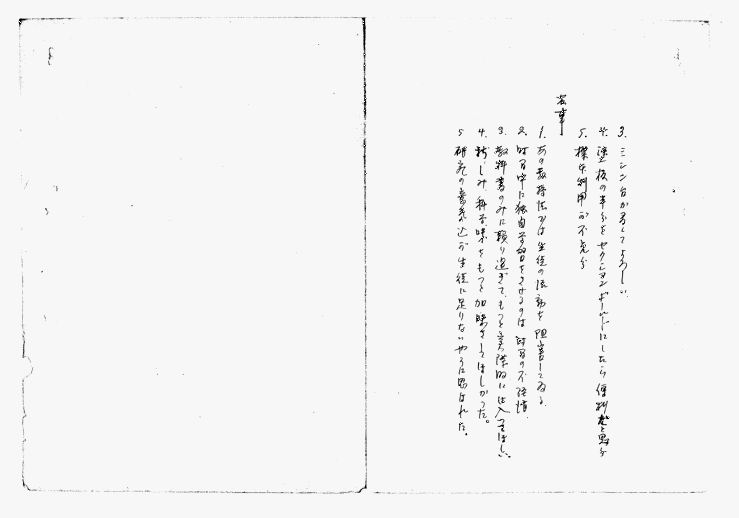 3. ミシン台から見てよろしい、
4. 塗板の半分をセクションボールドにしたら便利だと思ふ
5. 標本利用が不充分
若草
1. あの教授法では生徒の活動を阻害してゐる、
2. 時間中に独自学習をさせるのは時間の不経済、
3. 教科書のみに頼り過ぎて、もつと実際的に仕入てほしい。
4. 新しみ、科学味をもつと加味してほしかつた。
5 研究の意気込が生徒に足りないやうに思はれた。